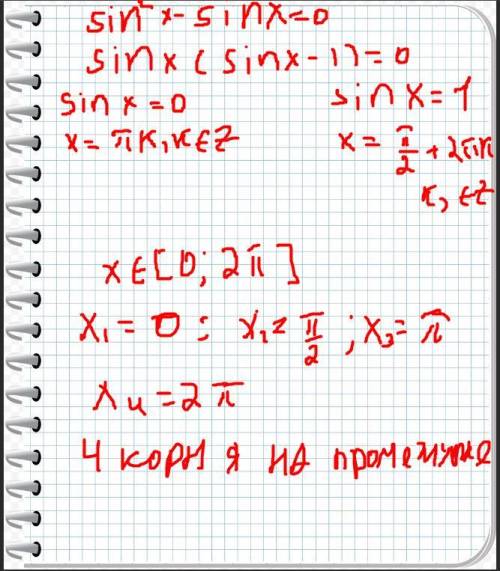 sin²x-sinx=0
sinx(sinx-1)=0
sin x=0 sin x=1
x=πk,k∈Z x=π/2+2πk
k,∈Z
x∈[0;2π]
x₁=0; x₂=π/2; x₃=π
x₄=2π
4 корня на промежутке